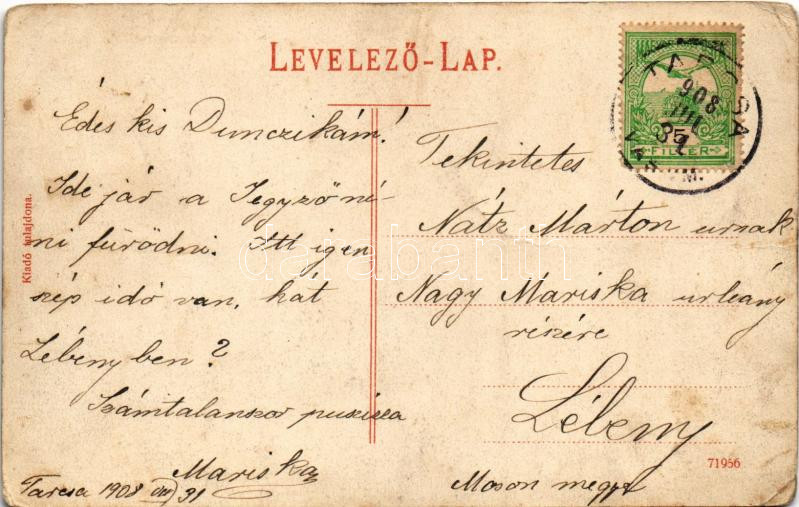 LEVELEZŐ-LAP.
Édes kis Dunczikám!
Ide jár a Jegyző né-
ni fürödni. Itt igen
szép idő van, hát
Lébenyben?
Számtalanszor puszilla
Mariska
Tarcsa 1908 VIII 31
Kiadó tulajdona.
Tekintetes
Nátz Márton urnak
Nagy Mariska urleány
részére
Lébeny
Moson megye
71956
TARCSA
908
FILLÉR
darabanth